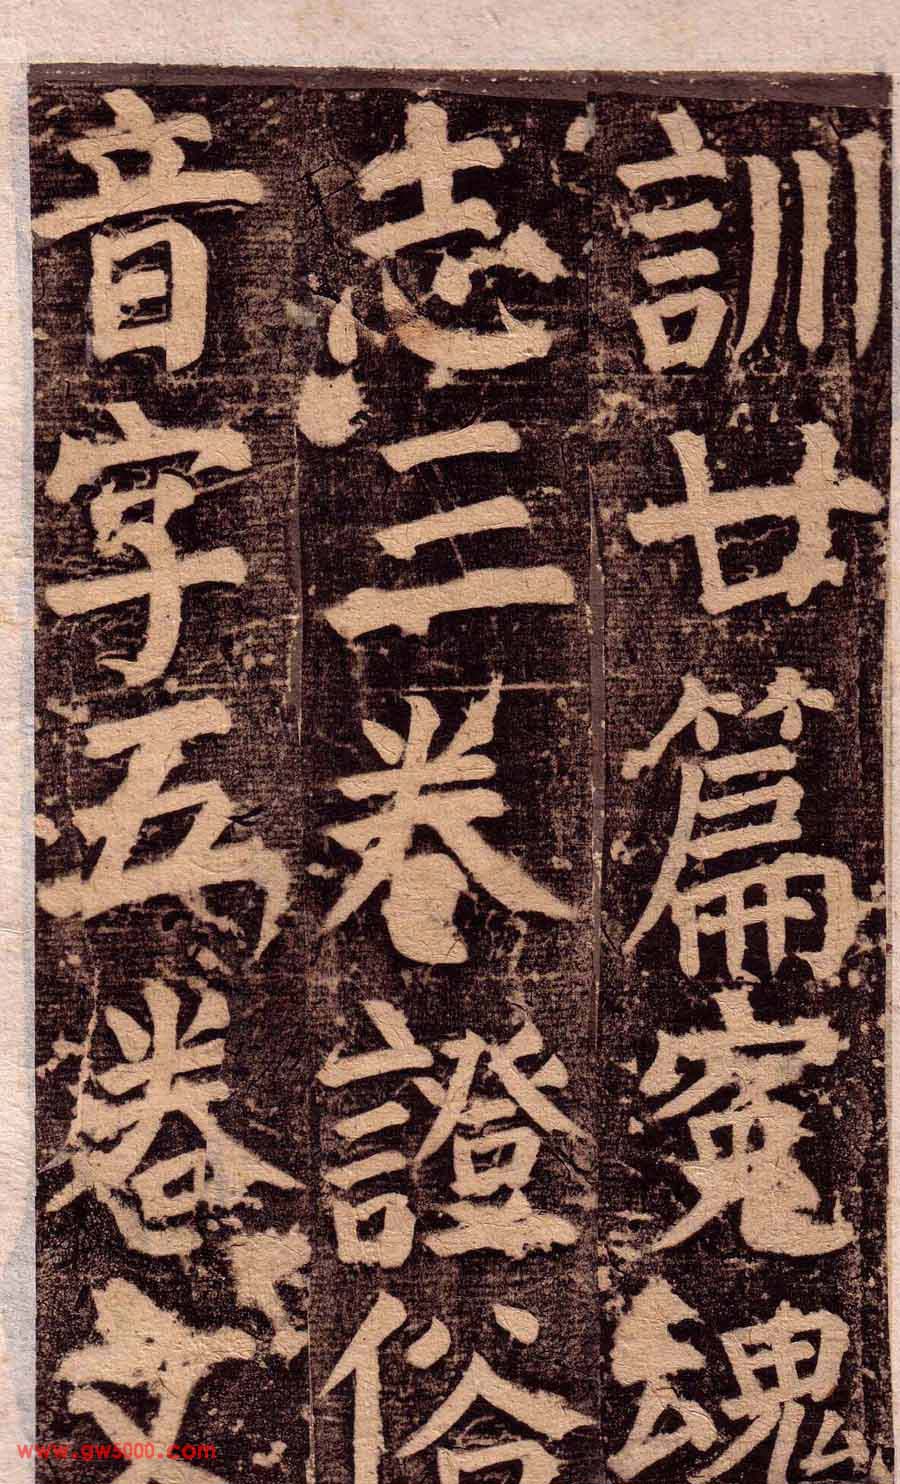 訓廿篇寃魂
志三卷證俗
音字五卷文
www.gw5000.com